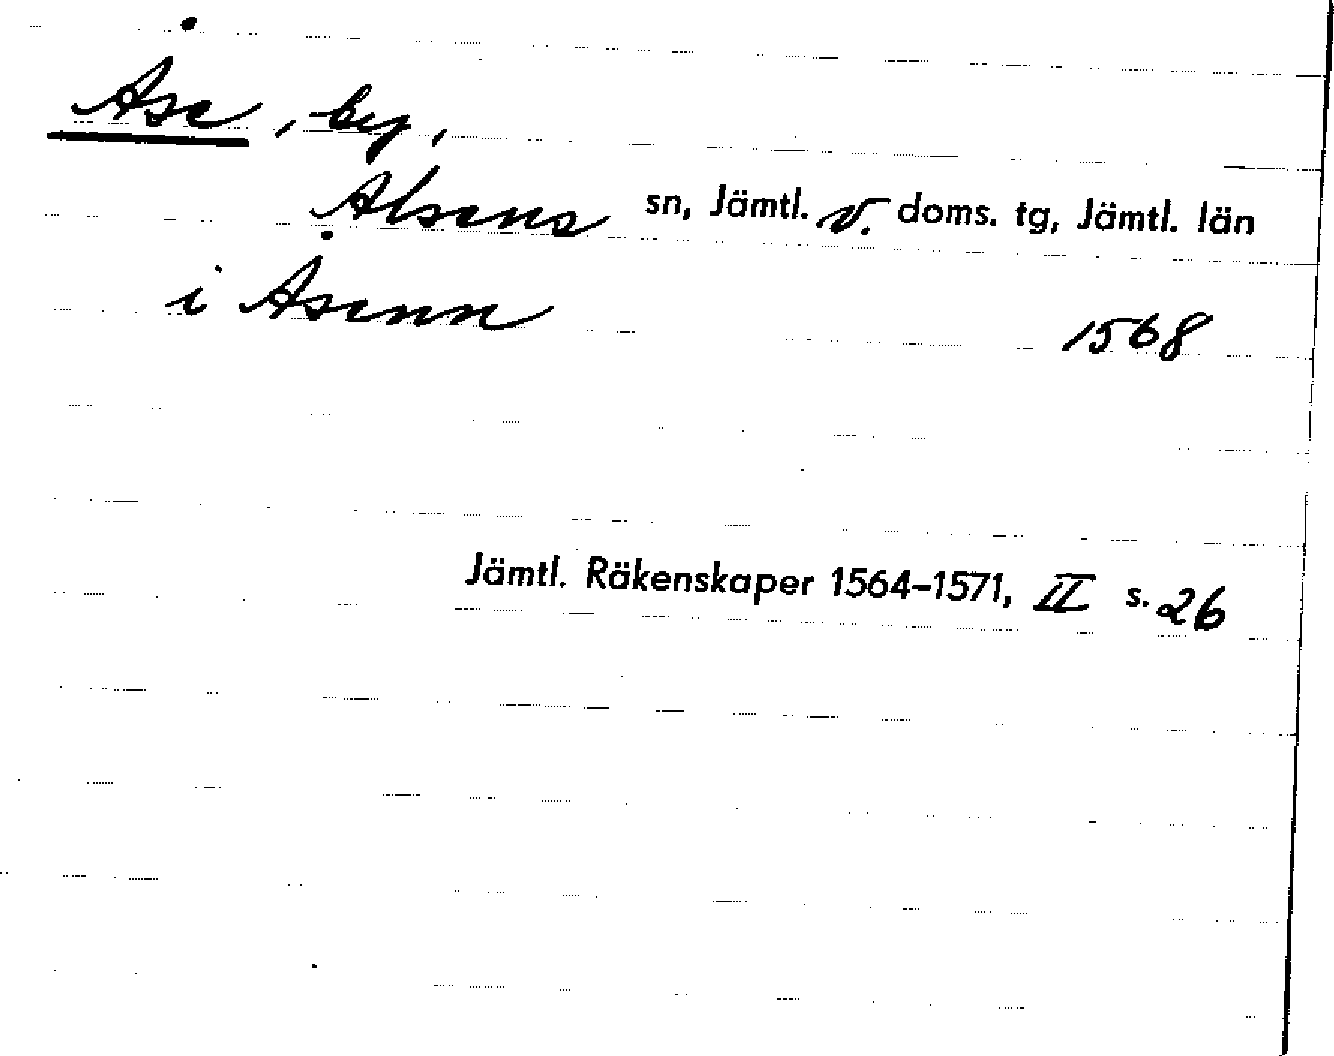 Åse, by,
Alsens sn, Jämtl. v. doms. tg, Jämtl. län
i Åsenn 1568
Jämtl. Räkenskaper 1564-1571, II s. 26